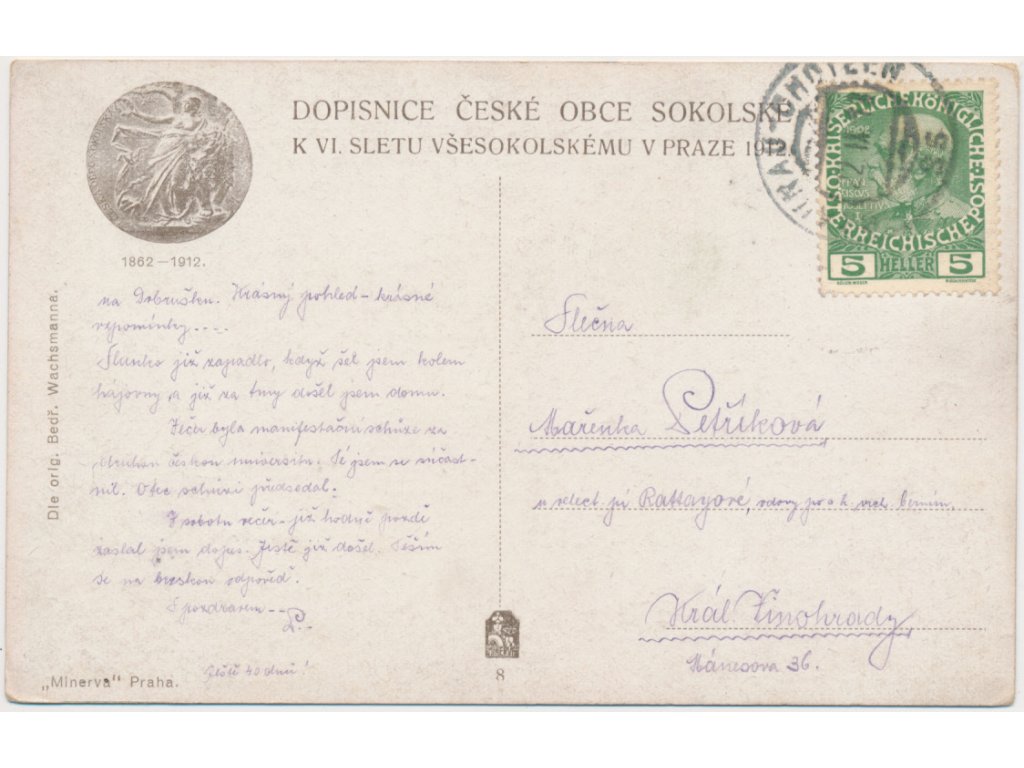 DOPISNICE ČESKÉ OBCE SOKOLSKÉ
K VI. SLETU VŠESOKOLSKÉMU V PRAZE 1912.
1862–1912.
Dle orig. Bedř. Wachsmanna.
na Dobrušken. Krásný pohled – krásné
vzpomínky....
Slunko již zapadlo, když šel jsem kolem
hájovny a již za tmy došel jsem domu.
Večer byla manifestační schůze za
druhou českou universitu. Té jsem se súčast-
nil. Otec schůzi předsedal.
V sobotu večer – již hodně pozdě
zaslal jsem dopis. Jistě již došel. Těším
se na brzskou odpověď.
S pozdravem --
Ještě 40 dnů!
„Minerva“ Praha.
8
ÖSTERREICHISCHE POST
KAISERLICH KÖNIGLICHE
5 HELLER 5
Slečna
Mařenka Petříková
Rattayové, vdovy po
Král Vinohrady
Mánesova 36.